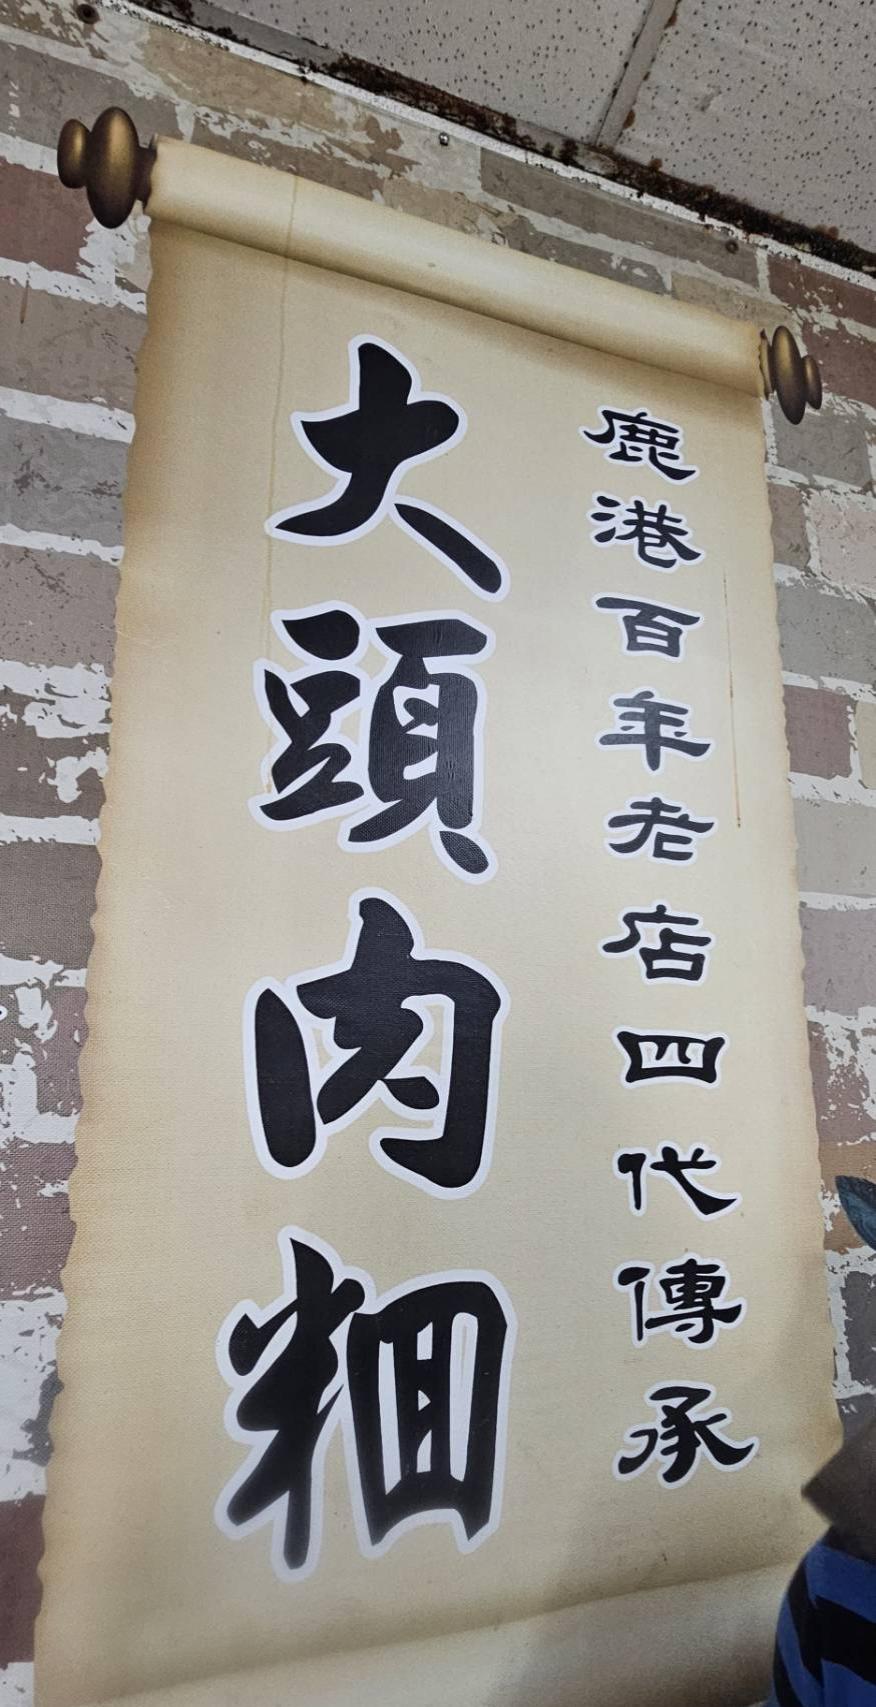 鹿港百年老店四代傳承
大頭肉